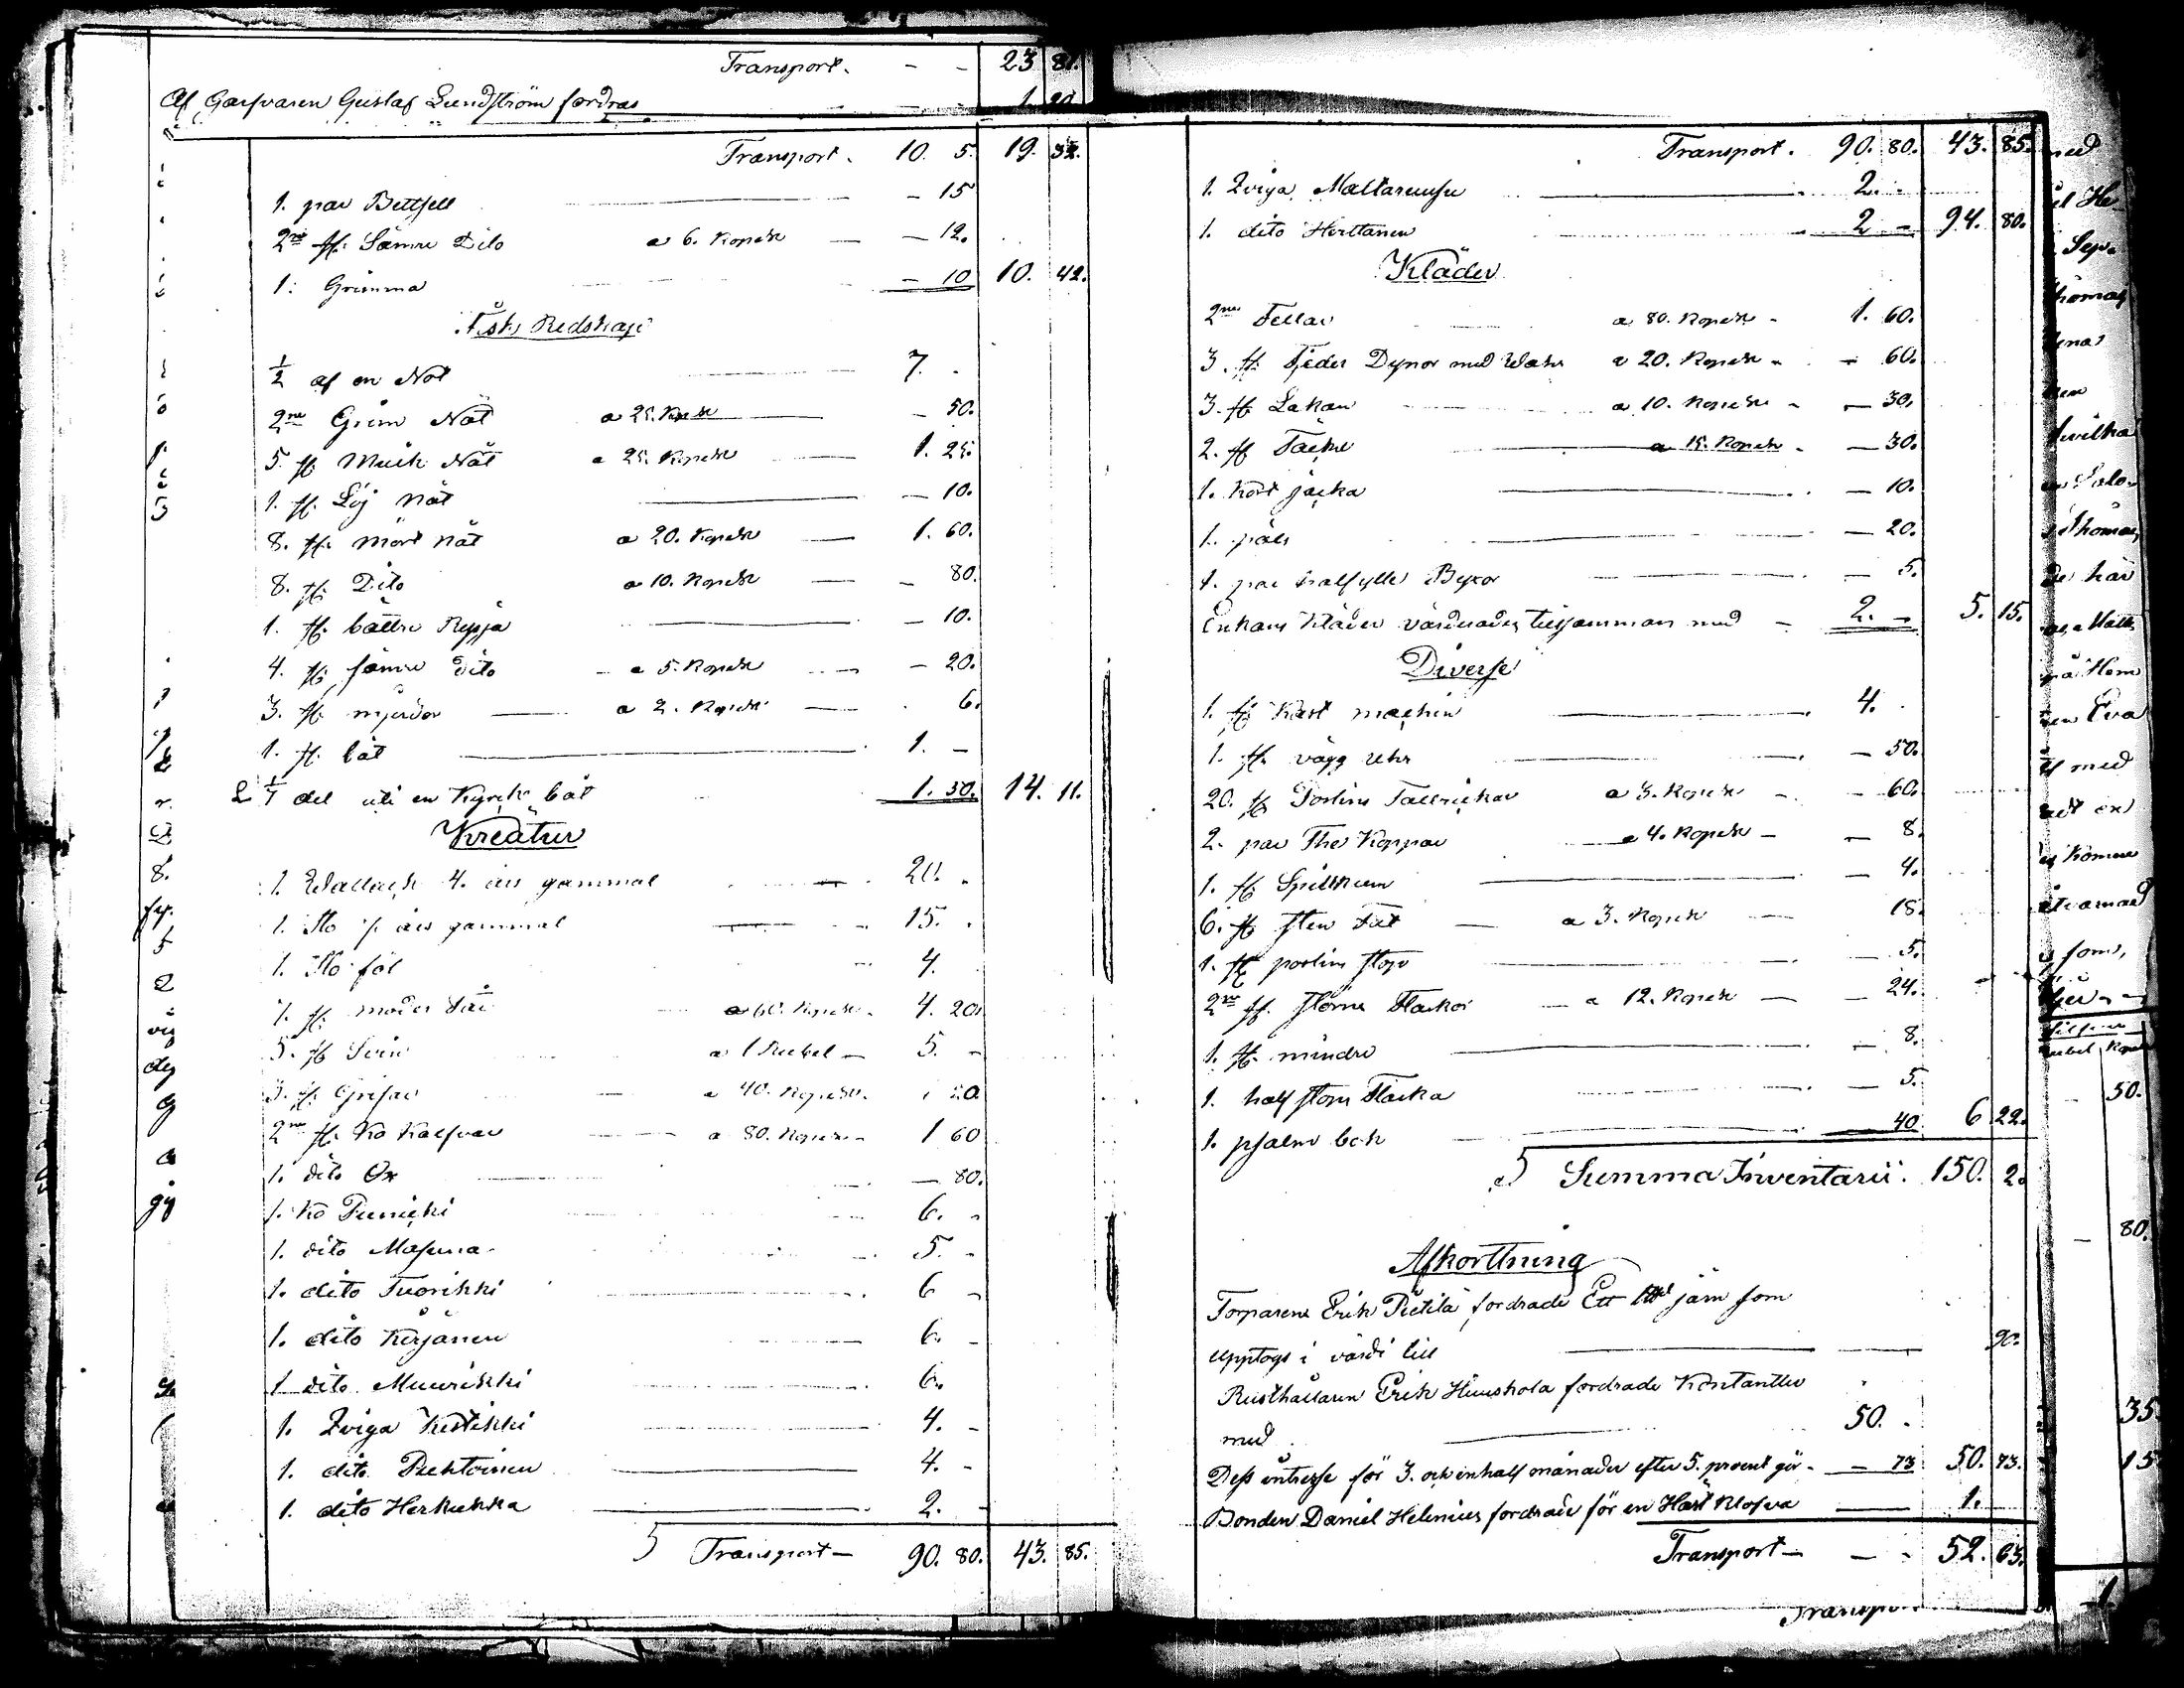 Transport. - - 23 81.
Af Garfvaren Gustaf Lundström fordras - - 1. 20
Transport. 10. 5. 19. 32.
1. par Bettsell - 15
2ne st. Sämre Dito a 6. Kopek - 12.
1. Grimma - 10 10. 42.
Fisk Redskap
1/2 af en Not 7. -
2ne Grim Nät a 25. Kopek - 50.
5. st. Muik Nät a 25. Kopek 1. 25.
1. st. Löj Nät - 10.
8. st. Mört Nät a 20. Kopek 1. 60.
8. st. Dito a 10. Kopek - 80.
1. st. bättre Ryssja - 10.
4. st. sämre Dito a 5. Kopek - 20.
3. st. mjerdor a 2. Kopek - 6.
1. st. båt 1. -
del uti en Kyrck båt 1. 50. 14. 11.
Kreatur
1. Wallack 4. års gammal 20. -
1. Sto års gammal 15. -
1. Sto föl 4. -
7. st. moder Får a 60. Kopek 4. 20.
5. st. Svin a 1 Rubel 5. -
3. st. Grisar a 40. Kopek 1 20.
2ne st. Ko Kalfvar a 80. Kopek 1 60
1. dito Ox - 80.
1. Ko Punicki 6. -
1. dito Masuna 5. -
1. dito Tuorikki 6 -
1. dito Kirjänen 6. -
1 dito Muurikki 6.
1. Qviga Kestikki 4. -
1. dito Puhtoinen 4. -
1. dito Herkukka 2. -
Transport - 90. 80. 43. 85.
Transport. 90. 80. 43. 85.
1. Qviga Maltaruusu 2. -
1. dito Herttanen 2 - 94. 80.
Kläder
2ne Fellar a 80. Kopek 1. 60.
3. st. Fjeder Dynor med Wahr a 20. Kopek - 60.
3. st. Lakan a 10. Kopek - 30.
2. st. Täcke a 15. Kopek - 30.
1. Kort jacka - 10.
1. päls - 20.
1. par halfylle Byxor - 5.
Enkans Kläder värderades tillsamman med 2. - 5. 15.
Diverse
1. st. Kast machin 4. -
1. st. vägg Uhr - 50.
20. st. Poslins Tallrickar a 3. Kopek - 60.
2. par The Koppar a 4. Kopek - 8.
1. st. Spillkum - 4.
6. st. sten Fat a 3. Kopek 18.
1. st. poslins stop - 5.
2ne st. större Flaskor a 12. Kopek - 24.
1. st. mindre - 8.
1. half stops Flaska - 5.
1. psalm bok 40 6 22.
Summa Inventarii. 150. 2.
Afkorttning
Torparen Erik Pietilä fordrade Ett järn som
upptogs i värde till 90.
Rusthållaren Erik Huuskola fordrade Kontantter
med 50. -
Dess intresse för 3. och enhalf månader efter 5. procent gör - 73 50. 73.
Bonden Daniel Helenius fordrade för en Häst Klofva 1. -
Transport - - 52. 63.
Transpo
med
Sep.
homas
hvilka
Thomas,
de här
på Hem
Eva
med
komma
50.
80.
35.
15